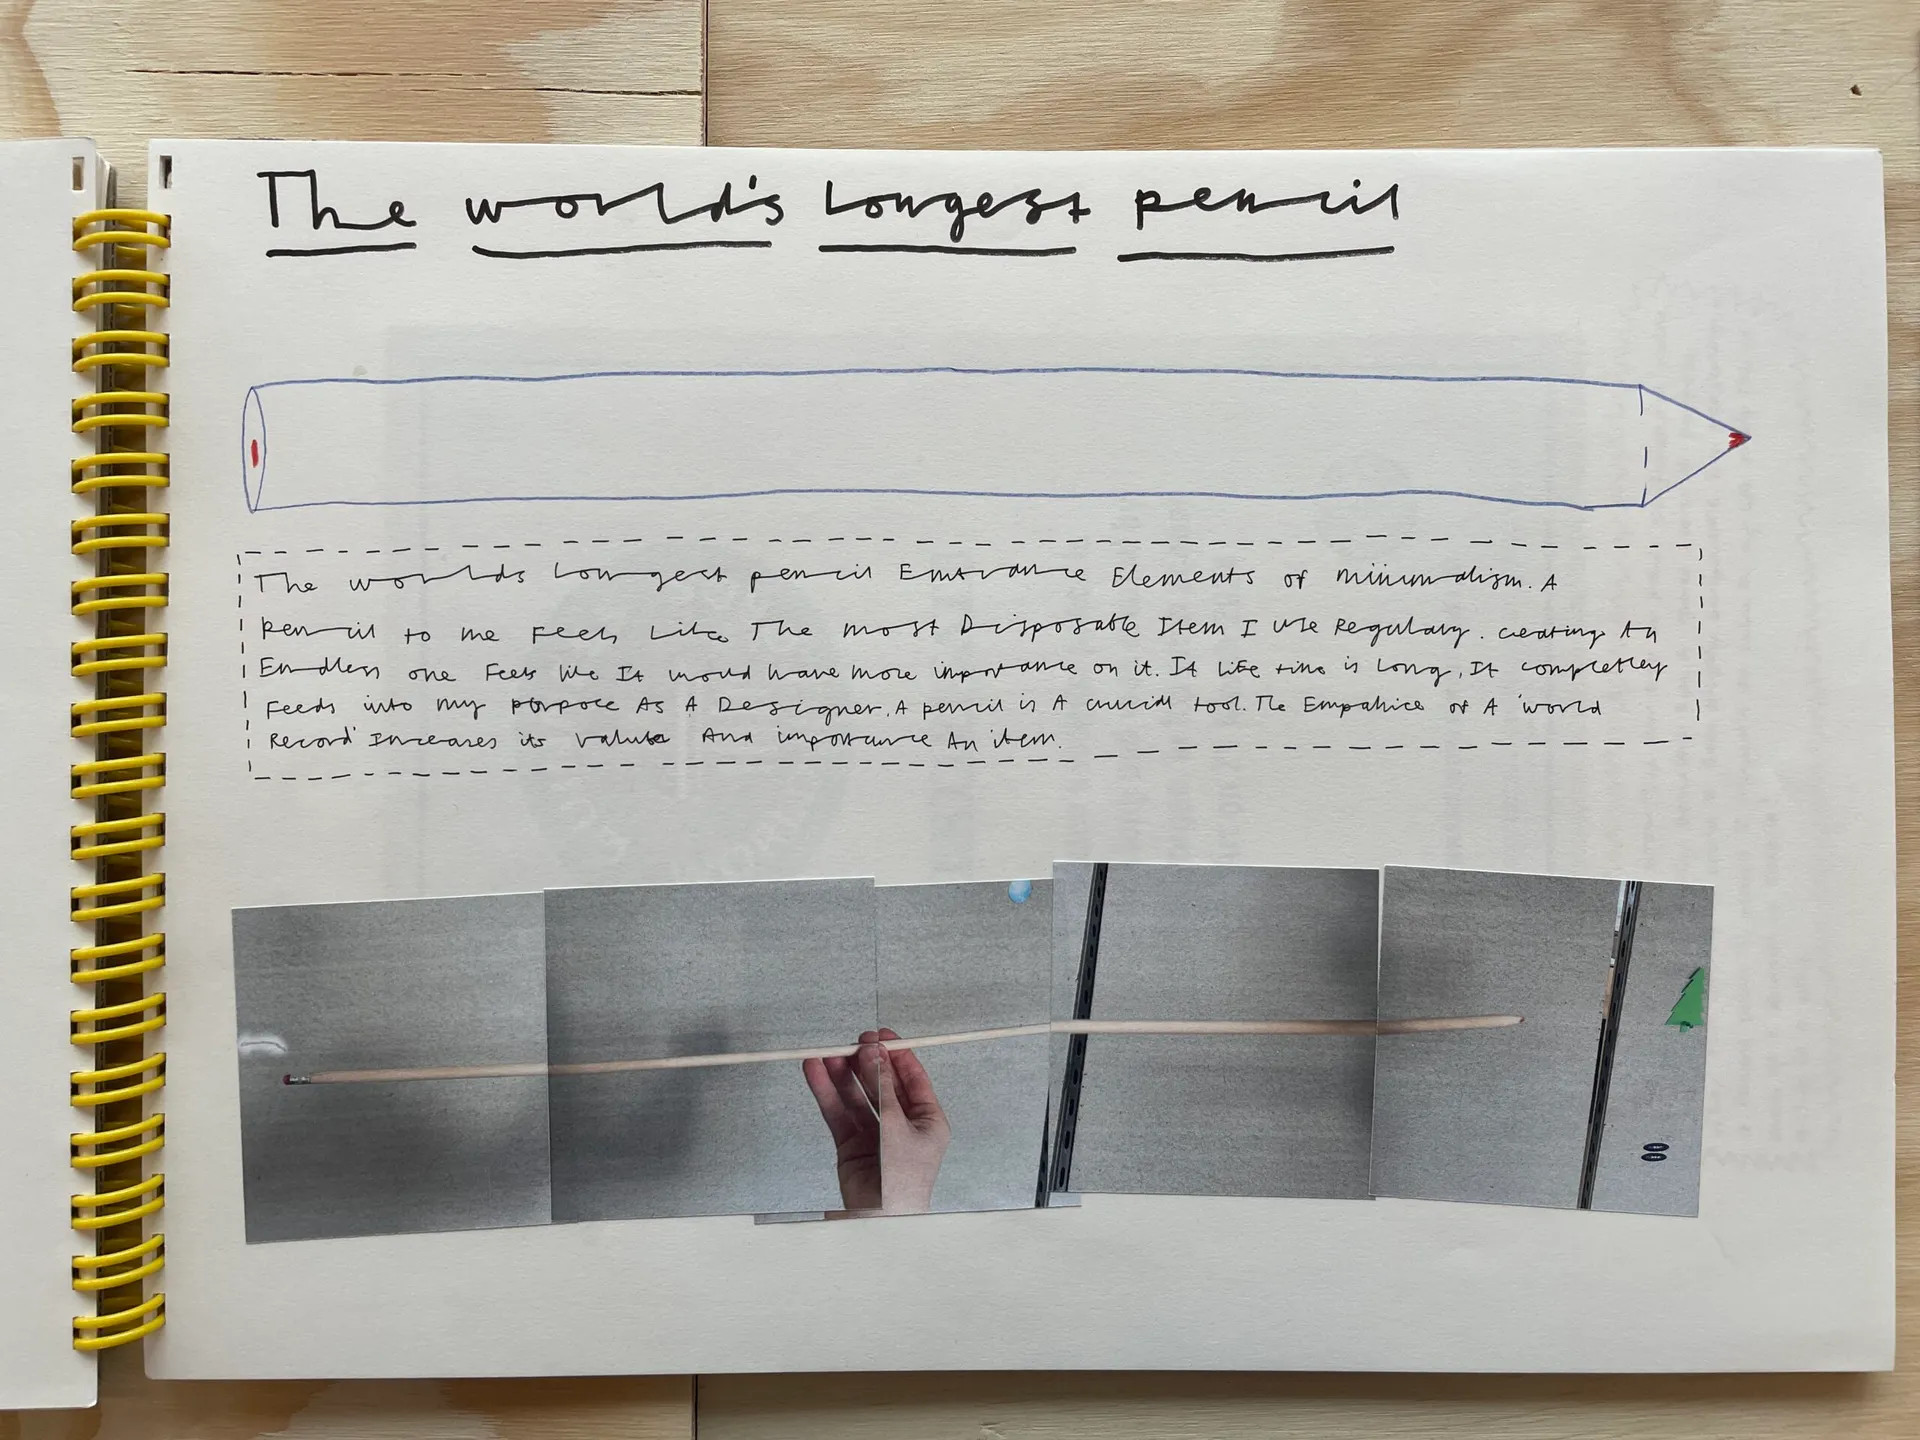 The world's longest pencil
The worlds longest pencil Emtrance Elements of minimalism. A
pencil to me Feels Like The most Disposable Item I use Regulary. creating An
Endless one Feels like It would have more importance on it. It life time is long, It completley
Feeds into my porpoce As A Designer. A pencil is A crucial tool. The Empahice of A 'world
Record' Increases its value And importance An item.